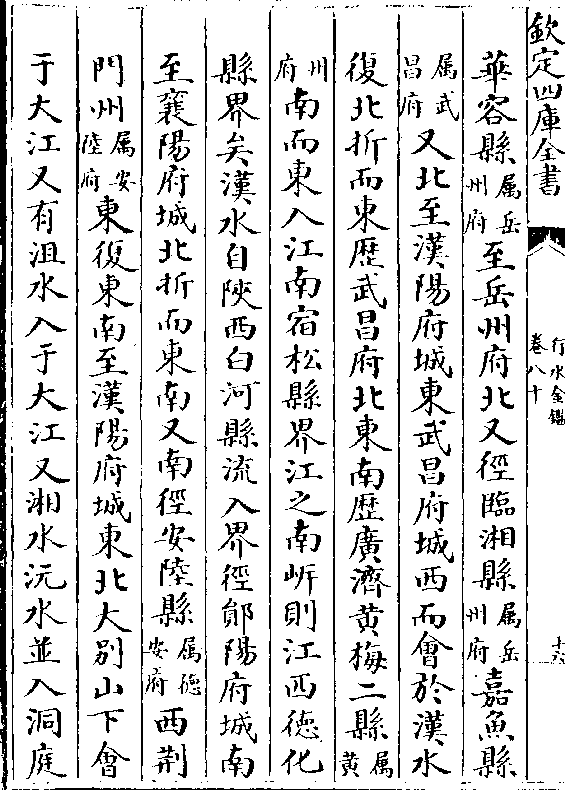 欽定四庫全書
行水金鑑
卷八十
十六
華容縣屬岳州府至岳州府北又徑臨湘縣屬岳州府嘉魚縣
屬武昌府又北至漢陽府城東武昌府城西而會於漢水
復北折而東歷武昌府北東南歷廣濟黃梅二縣屬黃
州府南而東入江南宿松縣界江之南岍則江西德化
縣界矣漢水自陝西白河縣流入界徑鄖陽府城南
至襄陽府城北折而東南又南徑安陸縣屬德安府西荆
門州屬安陸府東復東南至漢陽府城東北大别山下會
于大江又有沮水入于大江又湘水沅水並入洞庭